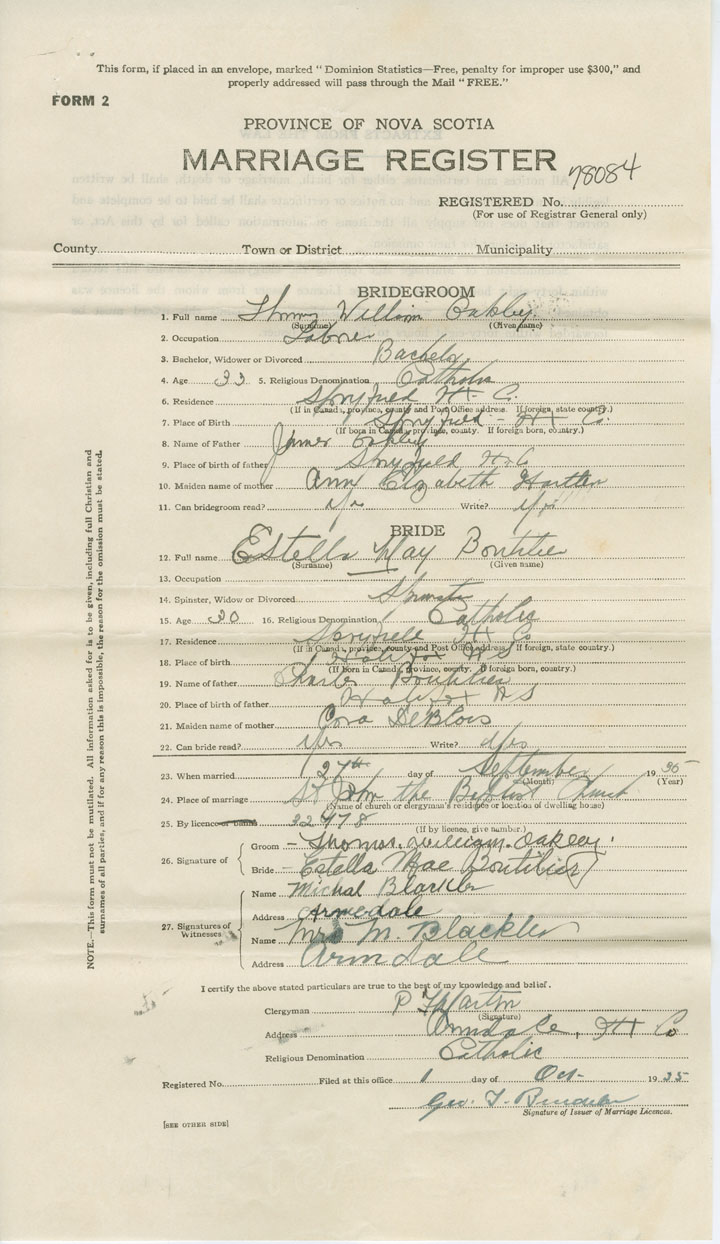 This form, if placed in an envelope, marked "Dominion Statistics—Free, penalty for improper use $300," and
properly addressed will pass through the Mail "FREE."
FORM 2
PROVINCE OF NOVA SCOTIA
MARRIAGE REGISTER
78084
REGISTERED No.
(For use of Registrar General only)
County Town or District Municipality
BRIDEGROOM
1. Full name Thomas William Oakley
(Surname) (Given name)
2. Occupation Laborer
3. Bachelor, Widower or Divorced Bachelor
4. Age 33 5. Religious Denomination Catholic
6. Residence Spryfield Hx Co.
(If in Canada, province, county and Post Office address. If foreign, state country.)
7. Place of Birth Spryfield - Hx Co.
(If born in Canada, province, county. If foreign born, country.)
8. Name of Father James Oakley
9. Place of birth of father Spryfield Hx Co
10. Maiden name of mother Elizabeth
11. Can bridegroom read? Yes Write? Yes
BRIDE
12. Full name Estella May Boutilier
(Surname) (Given name)
13. Occupation
14. Spinster, Widow or Divorced Spinster
15. Age 16. Religious Denomination Catholic
17. Residence Spryfield Hx Co
(If in Canada, province, county and Post Office address. If foreign, state country.)
18. Place of birth Halifax N S
(If born in Canada, province, county. If foreign born, country.)
19. Name of father Charles Boutilier
20. Place of father Halifax N S
21. Maiden name of mother Cora DeBlois
22. Can bride read? Yes Write? Yes
23. When married 27th day of September 1935
(Month) (Year)
24. Place of marriage St John the Baptist Church
(Name of church or clergyman's residence or location of dwelling house)
25. By licence or banns 22478
(If by licence, give number.)
26. Signature of
Groom - Thomas. William. Oakley.
Bride - Estella Mae Boutilier
27. Signatures of Witnesses
Name Michal Blackler
Address Armedale
Name Mrs M. Blackler
Address Armdale
I certify the above stated particulars are true to the best of my knowledge and belief.
Clergyman P Martin
(Signature)
Address Armdale, Hx Co
Religious Denomination Catholic
Registered No. Filed at this office 1 day of Oct- 1935
Geo. T.
Signature of Issuer of Marriage Licences.
[SEE OTHER SIDE]
NOTE.—This form must not be mutilated. All information asked for is to be given, including full Christian and
surnames of all parties, and if for any reason this is impossible, the reason for the omission must be stated.